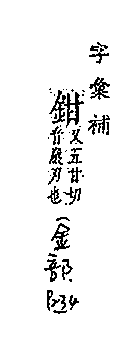 字彙補
鉗
又五甘切
音嚴刃也
(金部
P.234